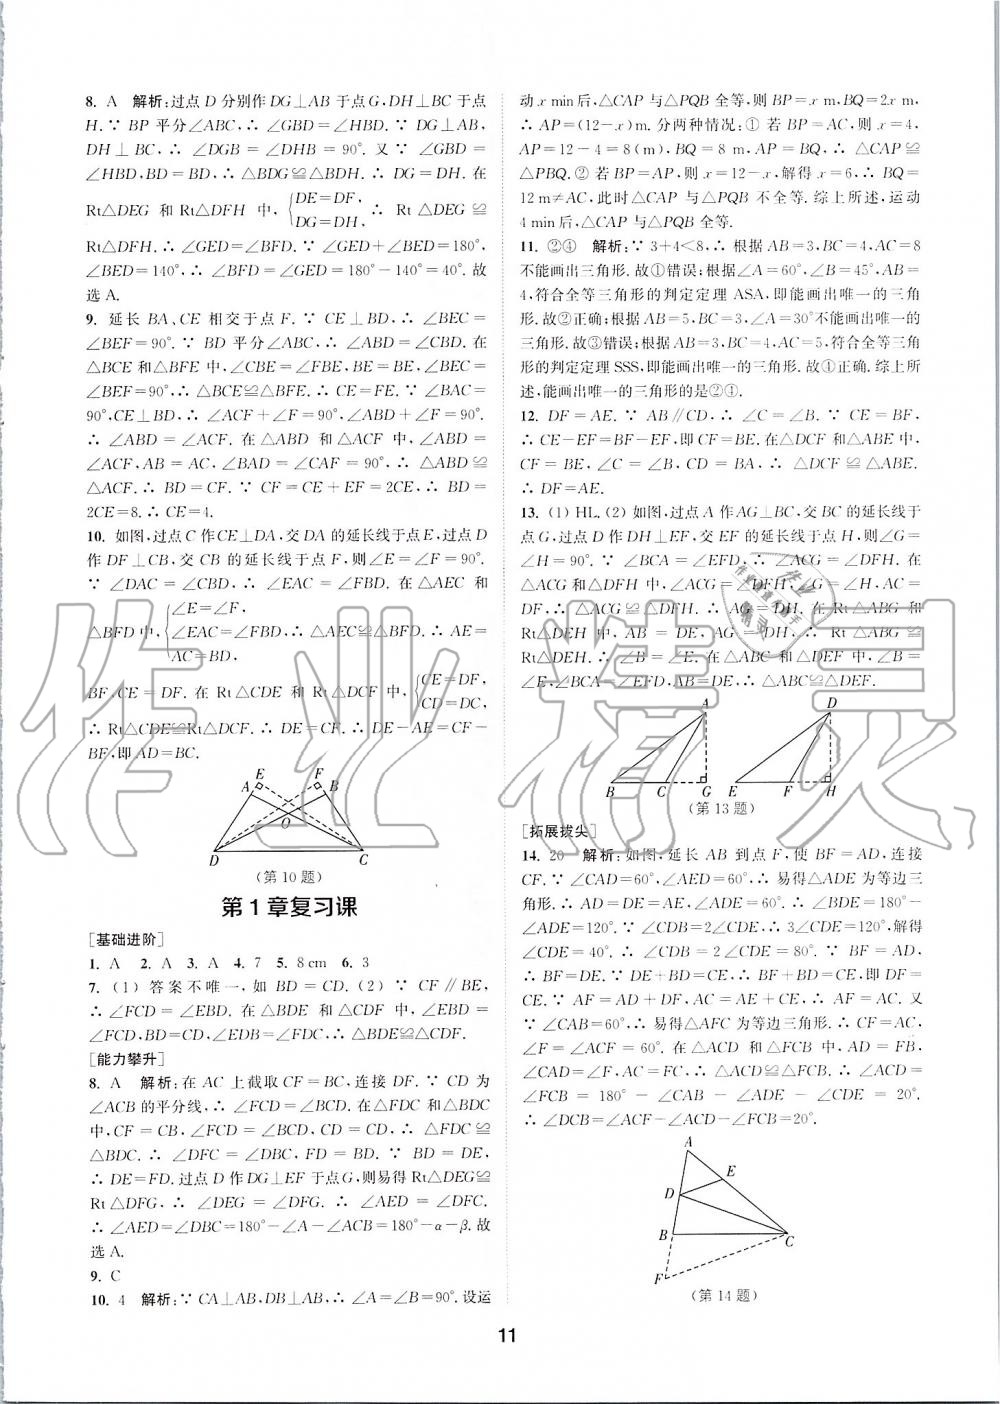 8. A 解析:过点 D 分别作 DG⊥AB 于点G,DH⊥BC 于点
H.∵ BP 平分∠ABC,∴ ∠GBD=∠HBD.∵ DG⊥AB,
DH⊥BC,∴ ∠DGB=∠DHB=90°.又∵ ∠GBD=
∠HBD,BD=BD,∴ △BDG≌△BDH.∴ DG=DH.在
Rt△DEG 和 Rt△DFH 中,{DE=DF,
DG=DH,∴ Rt△DEG≌
Rt△DFH.∴ ∠GED=∠BFD.∵ ∠GED+∠BED=180°,
∠BED=140°,∴ ∠BFD=∠GED=180°-140°=40°.故
选 A.
9. 延长 BA、CE 相交于点 F.∵ CE⊥BD,∴ ∠BEC=
∠BEF=90°.∵ BD 平分∠ABC,∴ ∠ABD=∠CBD.在
△BCE 和△BFE 中,∠CBE=∠FBE,BE=BE,∠BEC=
∠BEF=90°,∴ △BCE≌△BFE.∴ CE=FE.∵ ∠BAC=
90°,CE⊥BD,∴ ∠ACF+∠F=90°,∠ABD+∠F=90°.
∴ ∠ABD=∠ACF.在△ABD 和△ACF 中,∠ABD=
∠ACF,AB=AC,∠BAD=∠CAF=90°,∴ △ABD≌
△ACF.∴ BD=CF.∵ CF=CE+EF=2CE,∴ BD=
2CE=8.∴ CE=4.
10. 如图,过点 C 作CE⊥DA,交 DA 的延长线于点E,过点D
作 DF⊥CB,交 CB 的延长线于点 F,则∠E=∠F=90°.
∵ ∠DAC=∠CBD,∴ ∠EAC=∠FBD.在△AEC 和
△BFD 中,{∠E=∠F,
∠EAC=∠FBD,∴△AEC≌△BFD.∴ AE=
AC=BD,
BF,CE=DF.在 Rt△CDE 和 Rt△DCF 中,{CE=DF,
CD=DC,
∴ Rt△CDE≌Rt△DCF.∴ DE=CF.∴ DE-AE=CF-
BF,即 AD=BC.
E F
A B
O
D C
(第10题)
第1章复习课
[基础进阶]
1. A 2. A 3. A 4. 7 5. 8 cm 6. 3
7. (1) 答案不唯一,如 BD=CD.(2) ∵ CF∥BE,
∴ ∠FCD=∠EBD.在△BDE 和△CDF 中,∠EBD=
∠FCD,BD=CD,∠EDB=∠FDC,∴ △BDE≌△CDF.
[能力攀升]
8. A 解析:在 AC 上截取CF=BC,连接 DF.∵ CD 为
∠ACB 的平分线,∴ ∠FCD=∠BCD.在△FDC 和△BDC
中,CF=CB,∠FCD=∠BCD,CD=CD,∴ △FDC≌
△BDC.∴ ∠DFC=∠DBC,FD=BD.∵ BD=DE,
∴ DE=FD.过点 D 作DG⊥EF 于点G,则易得 Rt△DEG≌
Rt△DFG.∴ ∠DEG=∠DFG.∴ ∠AED=∠DFC.
∴ ∠AED=∠DBC=180°-∠A-∠ACB=180°-α-β.故
选 A.
9. C
10. 4 解析:∵ CA⊥AB,DB⊥AB,∴ ∠A=∠B=90°.设运
动 x min后,△CAP 与△PQB 全等,则 BP=x m,BQ=2x m,
∴ AP=(12-x)m.分两种情况:① 若 BP=AC,则 x=4,
AP=12-4=8(m),BQ=8 m,AP=BQ,∴ △CAP≌
△PBQ.② 若 BP=AP,则 x=12-x,解得 x=6,∴ BQ=
12 m≠AC,此时△CAP 与△PQB 不全等.综上所述,运动
4 min后,△CAP 与△PQB 全等.
11. ②④ 解析:∵ 3+4<8,∴ 根据 AB=3,BC=4,AC=8
不能画出三角形.故①错误;根据∠A=60°,∠B=45°,AB=
4,符合全等三角形的判定定理 ASA,即能画出唯一的三角
形.故②正确;根据 AB=5,BC=3,∠A=30°不能画出唯一的
三角形.故③错误;根据 AB=3,BC=4,AC=5,符合全等三角
形的判定定理SSS,即能画出唯一的三角形.故④正确.综上所
述,能画出唯一的三角形的是②④.
12. DF=AE.∵ AB∥CD,∴ ∠C=∠B.∵ CE=BF,
∴ CE-EF=BF-EF,即 CF=BE.在△DCF 和△ABE 中,
CF=BE,∠C=∠B,CD=BA,∴ △DCF≌△ABE.
∴ DF=AE.
13. (1) HL.(2) 如图,过点 A 作AG⊥BC,交 BC 的延长线于
点G,过点 D 作DH⊥EF,交 EF 的延长线于点 H,则∠G=
∠H=90°.∵ ∠BCA=∠EFD,∴ ∠ACG=∠DFH.在
△ACG 和△DFH 中,∠ACG=∠DFH,∠G=∠H,AC=
DF,∴ △ACG≌△DFH.∴ AG=DH.在 Rt△ABG 和
Rt△DEH 中,AB=DE,AG=DH,∴ Rt△ABG≌
Rt△DEH.∴ ∠B=∠E.在△ABC 和△DEF 中,∠B=
∠E,∠BCA=∠EFD,AB=DE,∴ △ABC≌△DEF.
A D
B C G E F H
(第13题)
[拓展拔尖]
14. 20 解析:如图,延长 AB 到点 F,使 BF=AD,连接
CF.∵ ∠CAD=60°,∠AED=60°,∴ 易得△ADE 为等边三
角形.∴ AD=DE=AE,∠ADE=60°.∴ ∠BDE=180°-
∠ADE=120°.∵ ∠CDB=2∠CDE,∴ 3∠CDE=120°,解得
∠CDE=40°.∴ ∠CDB=2∠CDE=80°.∵ BF=AD,
∴ BF=DE.∵ DE+BD=CE,∴ BF+BD=CE,即 DF=
CE.∵ AF=AD+DF,AC=AE+CE,∴ AF=AC.又
∵ ∠CAB=60°,∴ 易得△AFC 为等边三角形.∴ CF=AC,
∠F=∠ACF=60°.在△ACD 和△FCB 中,AD=FB,
∠CAD=∠F,AC=FC,∴ △ACD≌△FCB.∴ ∠ACD=
∠FCB=180°-∠CAB-∠ADE-∠CDE=20°.
∴ ∠DCB=∠ACF-∠ACD-∠FCB=20°.
A
E
D
B C
F
(第14题)
11
作业精灵